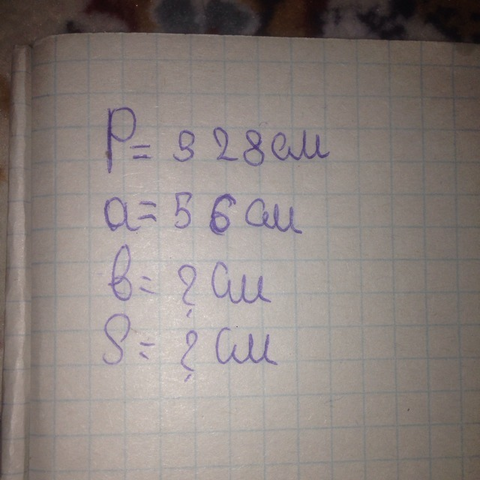 P= 328см
a= 56см
в= ? см
S= ? см